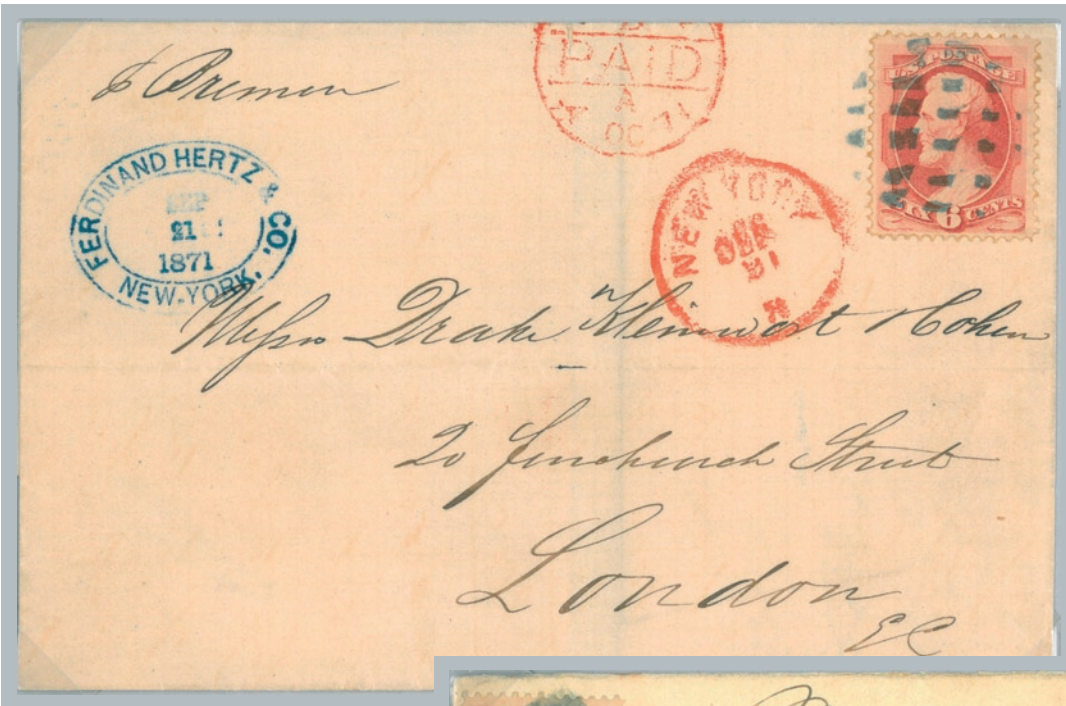 PAID
A
OC 71
U.S. POSTAGE
SIX 6 CENTS
p Bremen
FERDINAND HERTZ & CO.
SEP
21
1871
NEW-YORK.
NEW YORK
Messrs Drake Kleinwort & Cohen
20 Fenchurch Street
London
EC